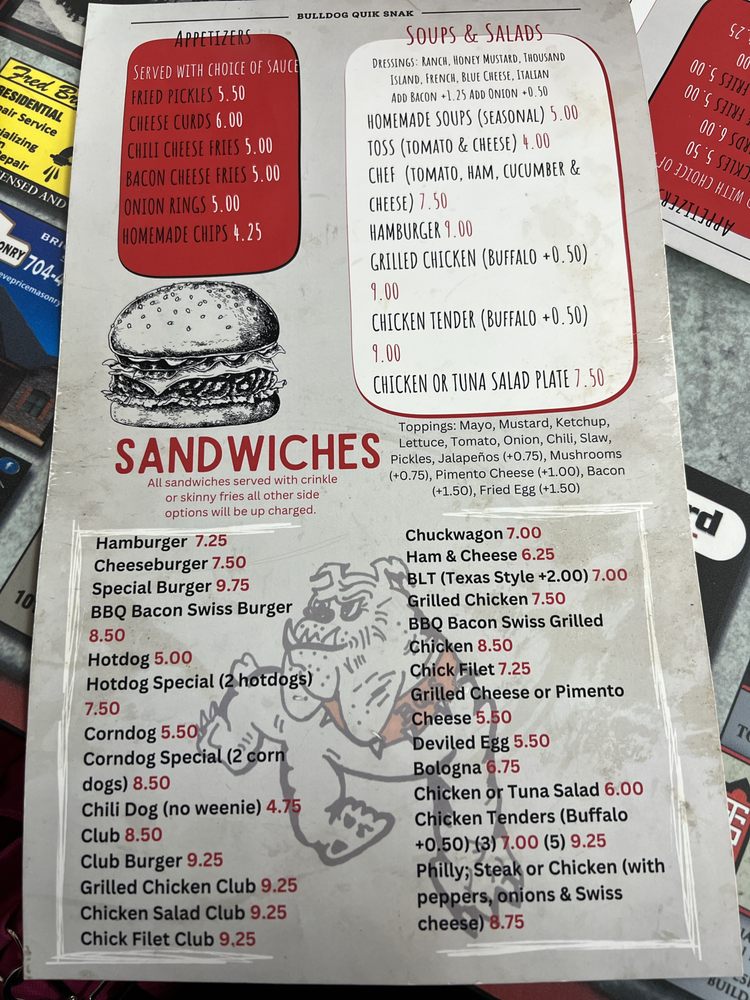 BULLDOG QUIK SNAK
APPETIZERS
SERVED WITH CHOICE OF SAUCE
FRIED PICKLES 5.50
CHEESE CURDS 6.00
CHILI CHEESE FRIES 5.00
BACON CHEESE FRIES 5.00
ONION RINGS 5.00
HOMEMADE CHIPS 4.25
SOUPS & SALADS
DRESSINGS: RANCH, HONEY MUSTARD, THOUSAND
ISLAND, FRENCH, BLUE CHEESE, ITALIAN
ADD BACON +1.25 ADD ONION +0.50
HOMEMADE SOUPS (SEASONAL) 5.00
TOSS (TOMATO & CHEESE) 4.00
CHEF (TOMATO, HAM, CUCUMBER &
CHEESE) 7.50
HAMBURGER 9.00
GRILLED CHICKEN (BUFFALO +0.50)
9.00
CHICKEN TENDER (BUFFALO +0.50)
9.00
CHICKEN OR TUNA SALAD PLATE 7.50
SANDWICHES
All sandwiches served with crinkle
or skinny fries all other side
options will be up charged.
Toppings: Mayo, Mustard, Ketchup,
Lettuce, Tomato, Onion, Chili, Slaw,
Pickles, Jalapeños (+0.75), Mushrooms
(+0.75), Pimento Cheese (+1.00), Bacon
(+1.50), Fried Egg (+1.50)
Hamburger 7.25
Cheeseburger 7.50
Special Burger 9.75
BBQ Bacon Swiss Burger
8.50
Hotdog 5.00
Hotdog Special (2 hotdogs)
7.50
Corndog 5.50
Corndog Special (2 corn
dogs) 8.50
Chili Dog (no weenie) 4.75
Club 8.50
Club Burger 9.25
Grilled Chicken Club 9.25
Chicken Salad Club 9.25
Chick Filet Club 9.25
Chuckwagon 7.00
Ham & Cheese 6.25
BLT (Texas Style +2.00) 7.00
Grilled Chicken 7.50
BBQ Bacon Swiss Grilled
Chicken 8.50
Chick Filet 7.25
Grilled Cheese or Pimento
Cheese 5.50
Deviled Egg 5.50
Bologna 6.75
Chicken or Tuna Salad 6.00
Chicken Tenders (Buffalo
+0.50) (3) 7.00 (5) 9.25
Philly; Steak or Chicken (with
peppers, onions & Swiss
cheese) 8.75
Fred B
RESIDENTIAL
air Service
ializing
Repair
ENSED AND
BRI
ONRY
704-4
evepricemasonry
10
rd
APPETIZERS
D WITH CHOICE OF
CKLES 5.50
RDS 6.00
FRIES 5.00
FRIES 5.00
00
4.25
BUILD